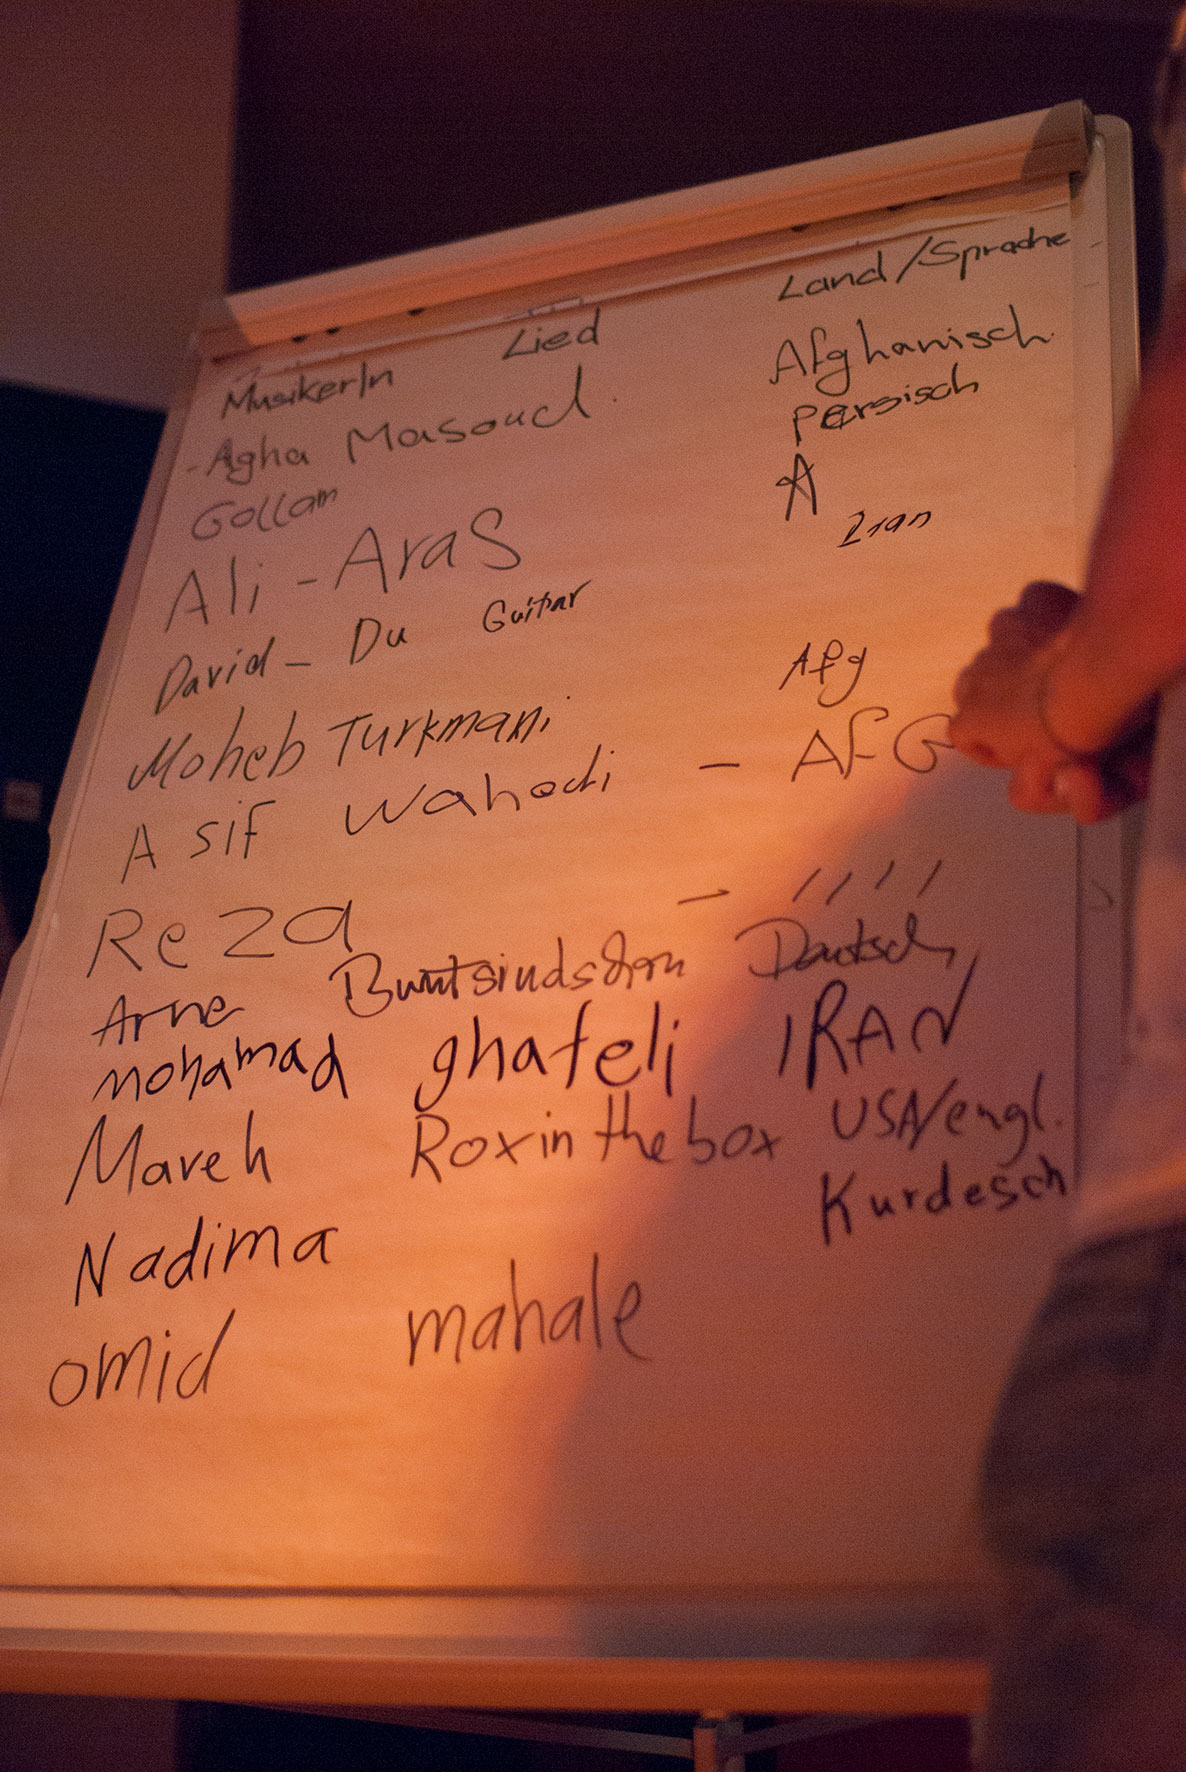 MusikerIn Lied Land/Sprache
- Agha Masoud Afghanisch
Gollam Persisch
Ali - Aras A
David - Du Guitar Iran
Moheb Turkmani Afg
Asif Wahedi - AFG
Reza - ////
Arne Deutsch
mohamad ghafeli IRAN
Mareh Rox in the box USA/engl.
Nadima Kurdesch
omid mahale